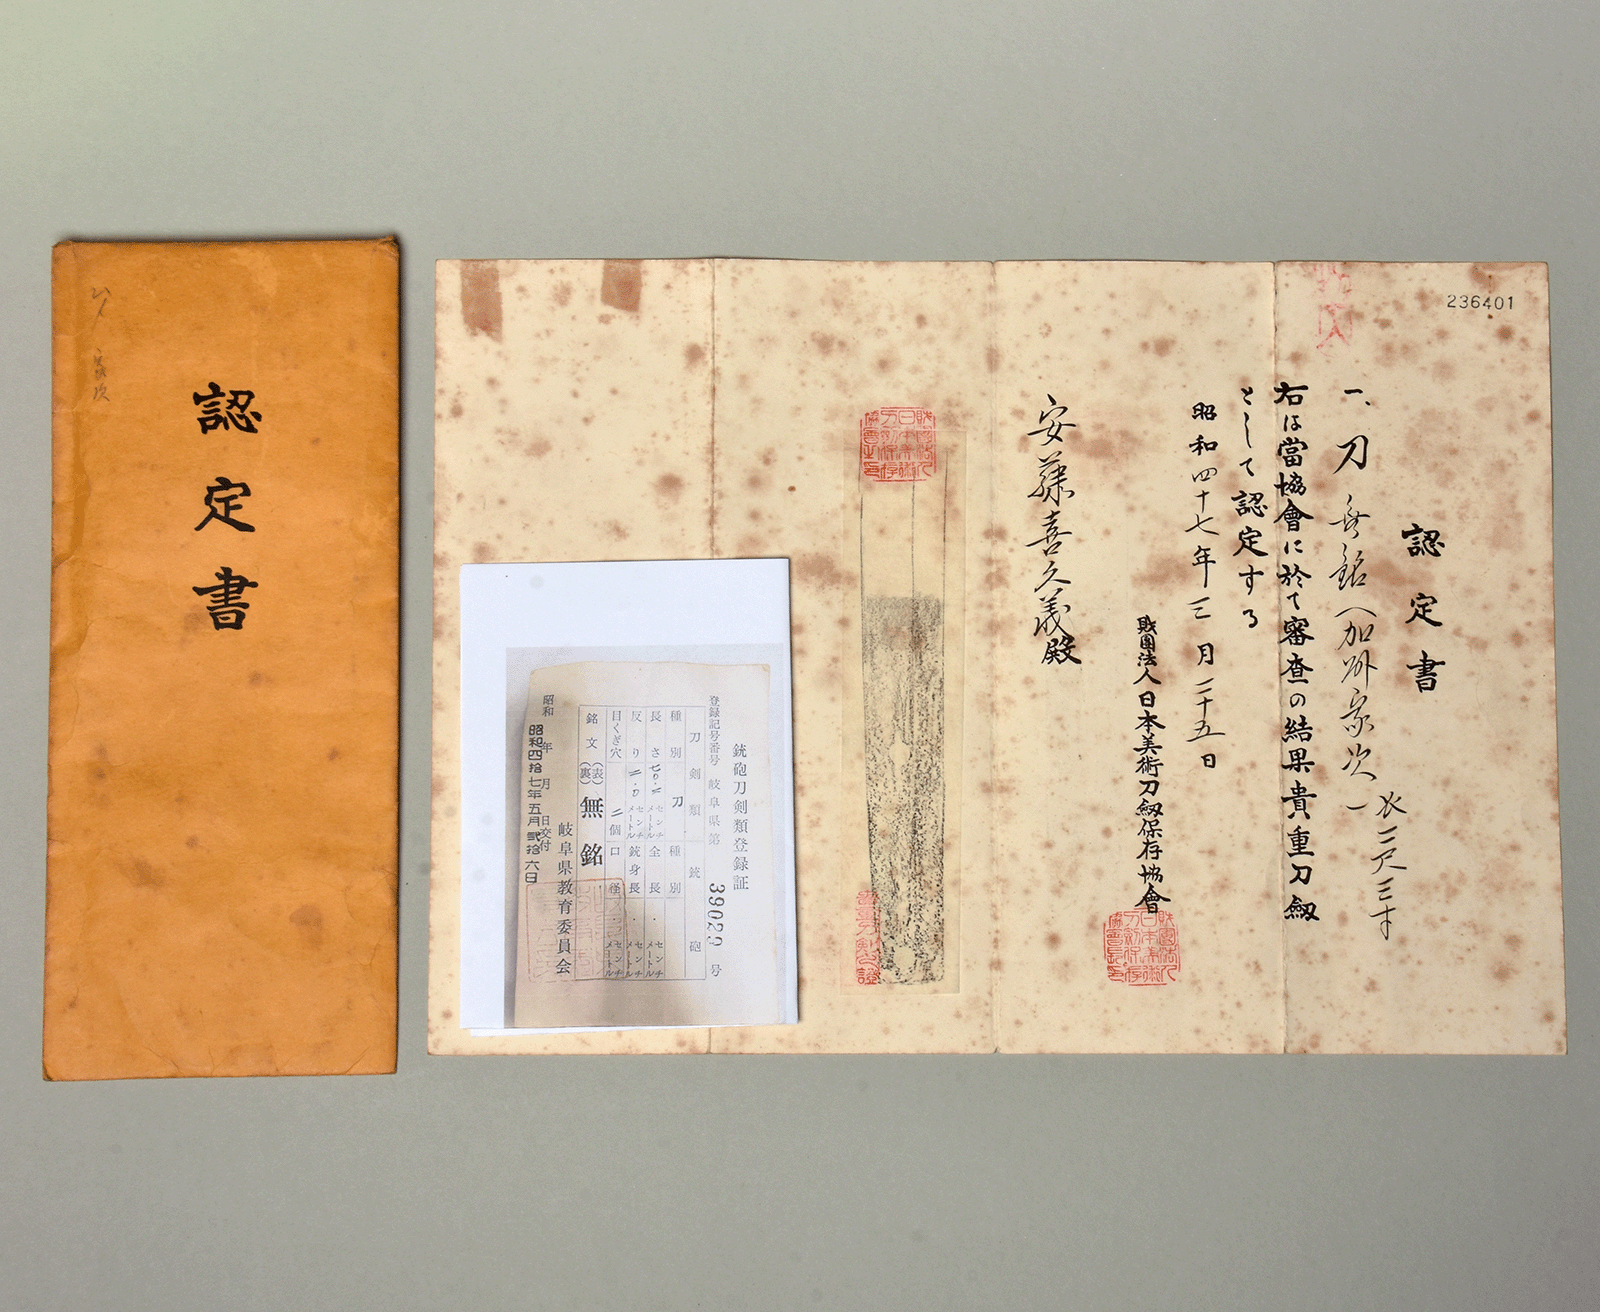 認定書
家次
236401
認定書
一、刀 無銘(加州家次) 長二尺三寸
右は當協會に於て審査の結果貴重刀劔
として認定する
昭和四十七年三月二十五日
財團法人日本美術刀劔保存協會
安藤喜久義殿
銃砲刀剣類登録証
登録記号番号 岐阜県第 39029 号
刀剣類 銃砲
種別 刀 種別
長さ 七〇.二 センチメートル 全長 . センチメートル
反り 二.〇 センチメートル 銃身長 . センチメートル
目くぎ穴 二個 口径 センチメートル
銘文 (表) (裏) 無銘
昭和 年 月 日交付
昭和四拾七年五月弐拾六日
岐阜県教育委員会